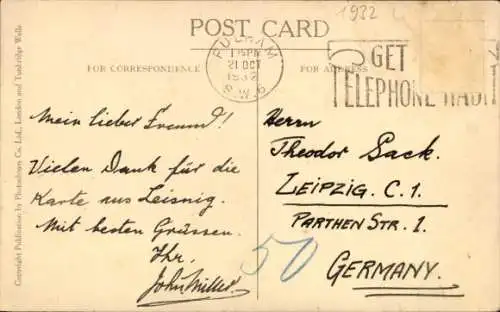 POST CARD
1932
FOR CORRESPONDENCE
FOR ADDRESS
FULHAM
1 15 PM
21 OCT
1932
S.W.6
GET
TELEPHONE HABIT
Copyright Publication by Photochrom Co. Ltd., London and Tunbridge Wells
Mein lieber Freund!
Vielen Dank für die
Karte aus Leisnig.
Mit besten Grüssen.
Ihr.
John Miller
Herrn
Theodor Sack.
LEIPZIG. C.1.
PARTHEN STR. 1.
GERMANY.
50